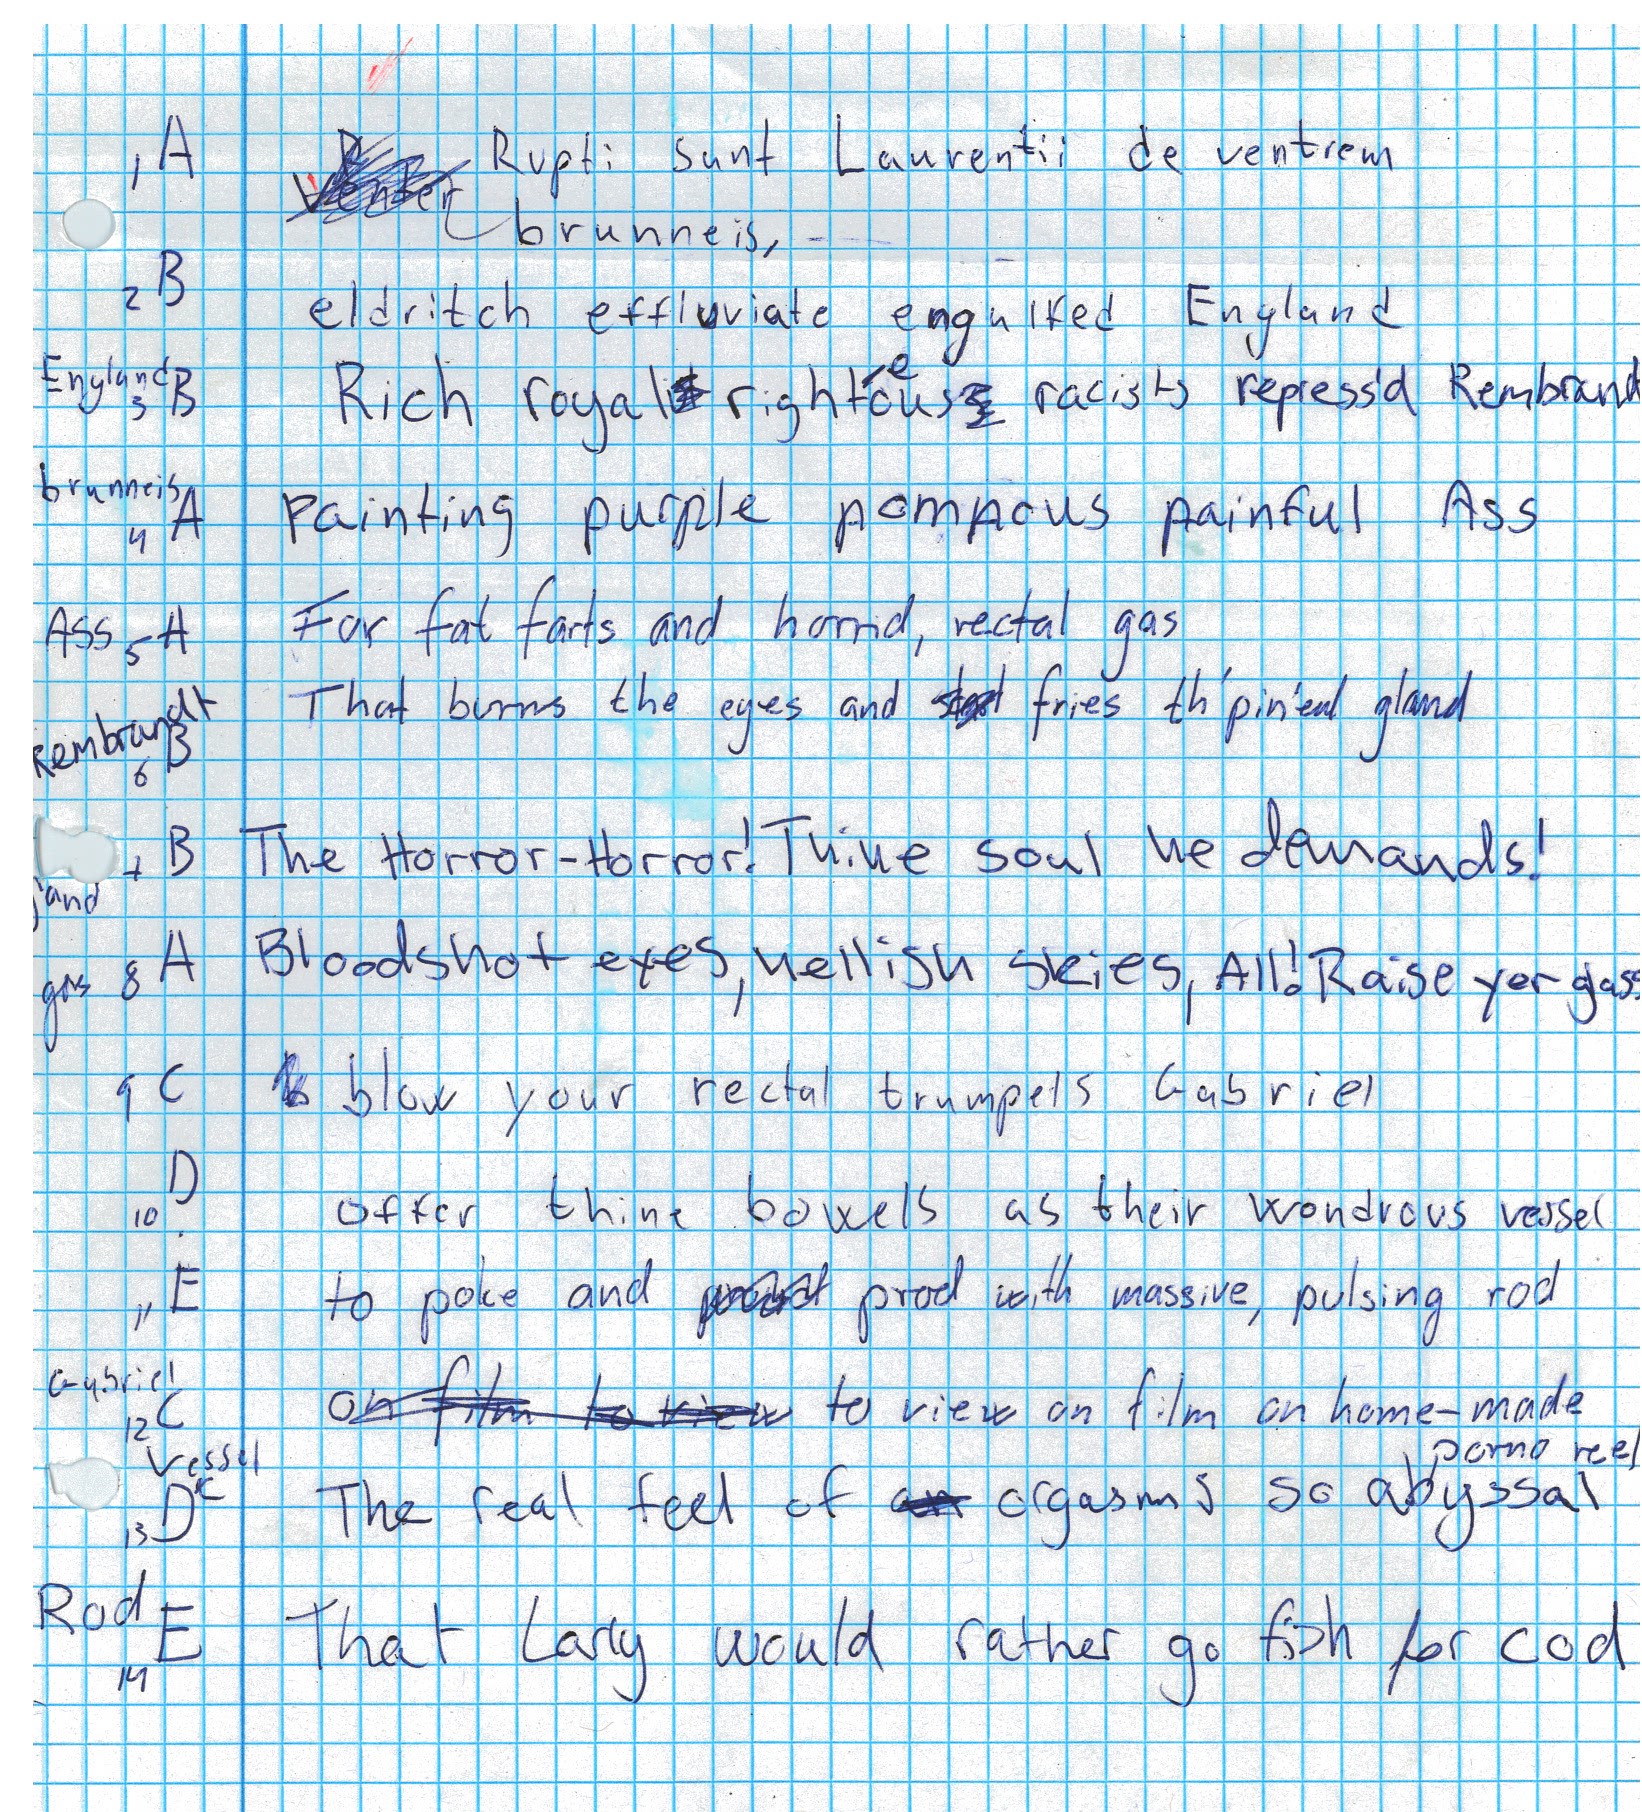 1 A Rupti sunt Laurentii de ventrem
brunneis,
2 B eldritch effluviate engulfed England
England 3 B Rich royal righteous racists repress'd Rembrand
brunneis 4 A Painting purple pompous painful Ass
Ass 5 A For fat farts and horrid, rectal gas
Rembrandt 6 B That burns the eyes and fries th'pin'eal gland
7 B The Horror-Horror! Thine soul he demands!
gland
gas 8 A Bloodshot eyes, hellish skies, All! Raise yer gass
9 C blow your rectal trumpets Gabriel
10 D offer thine bowels as their wondrous vessel
11 E to poke and prod with massive, pulsing rod
Gabriel 12 C on film to view to view on film on home-made
porno reel
Vessel 13 D The real feel of orgasms so abyssal
Rod 14 E That Larry would rather go fish for cod